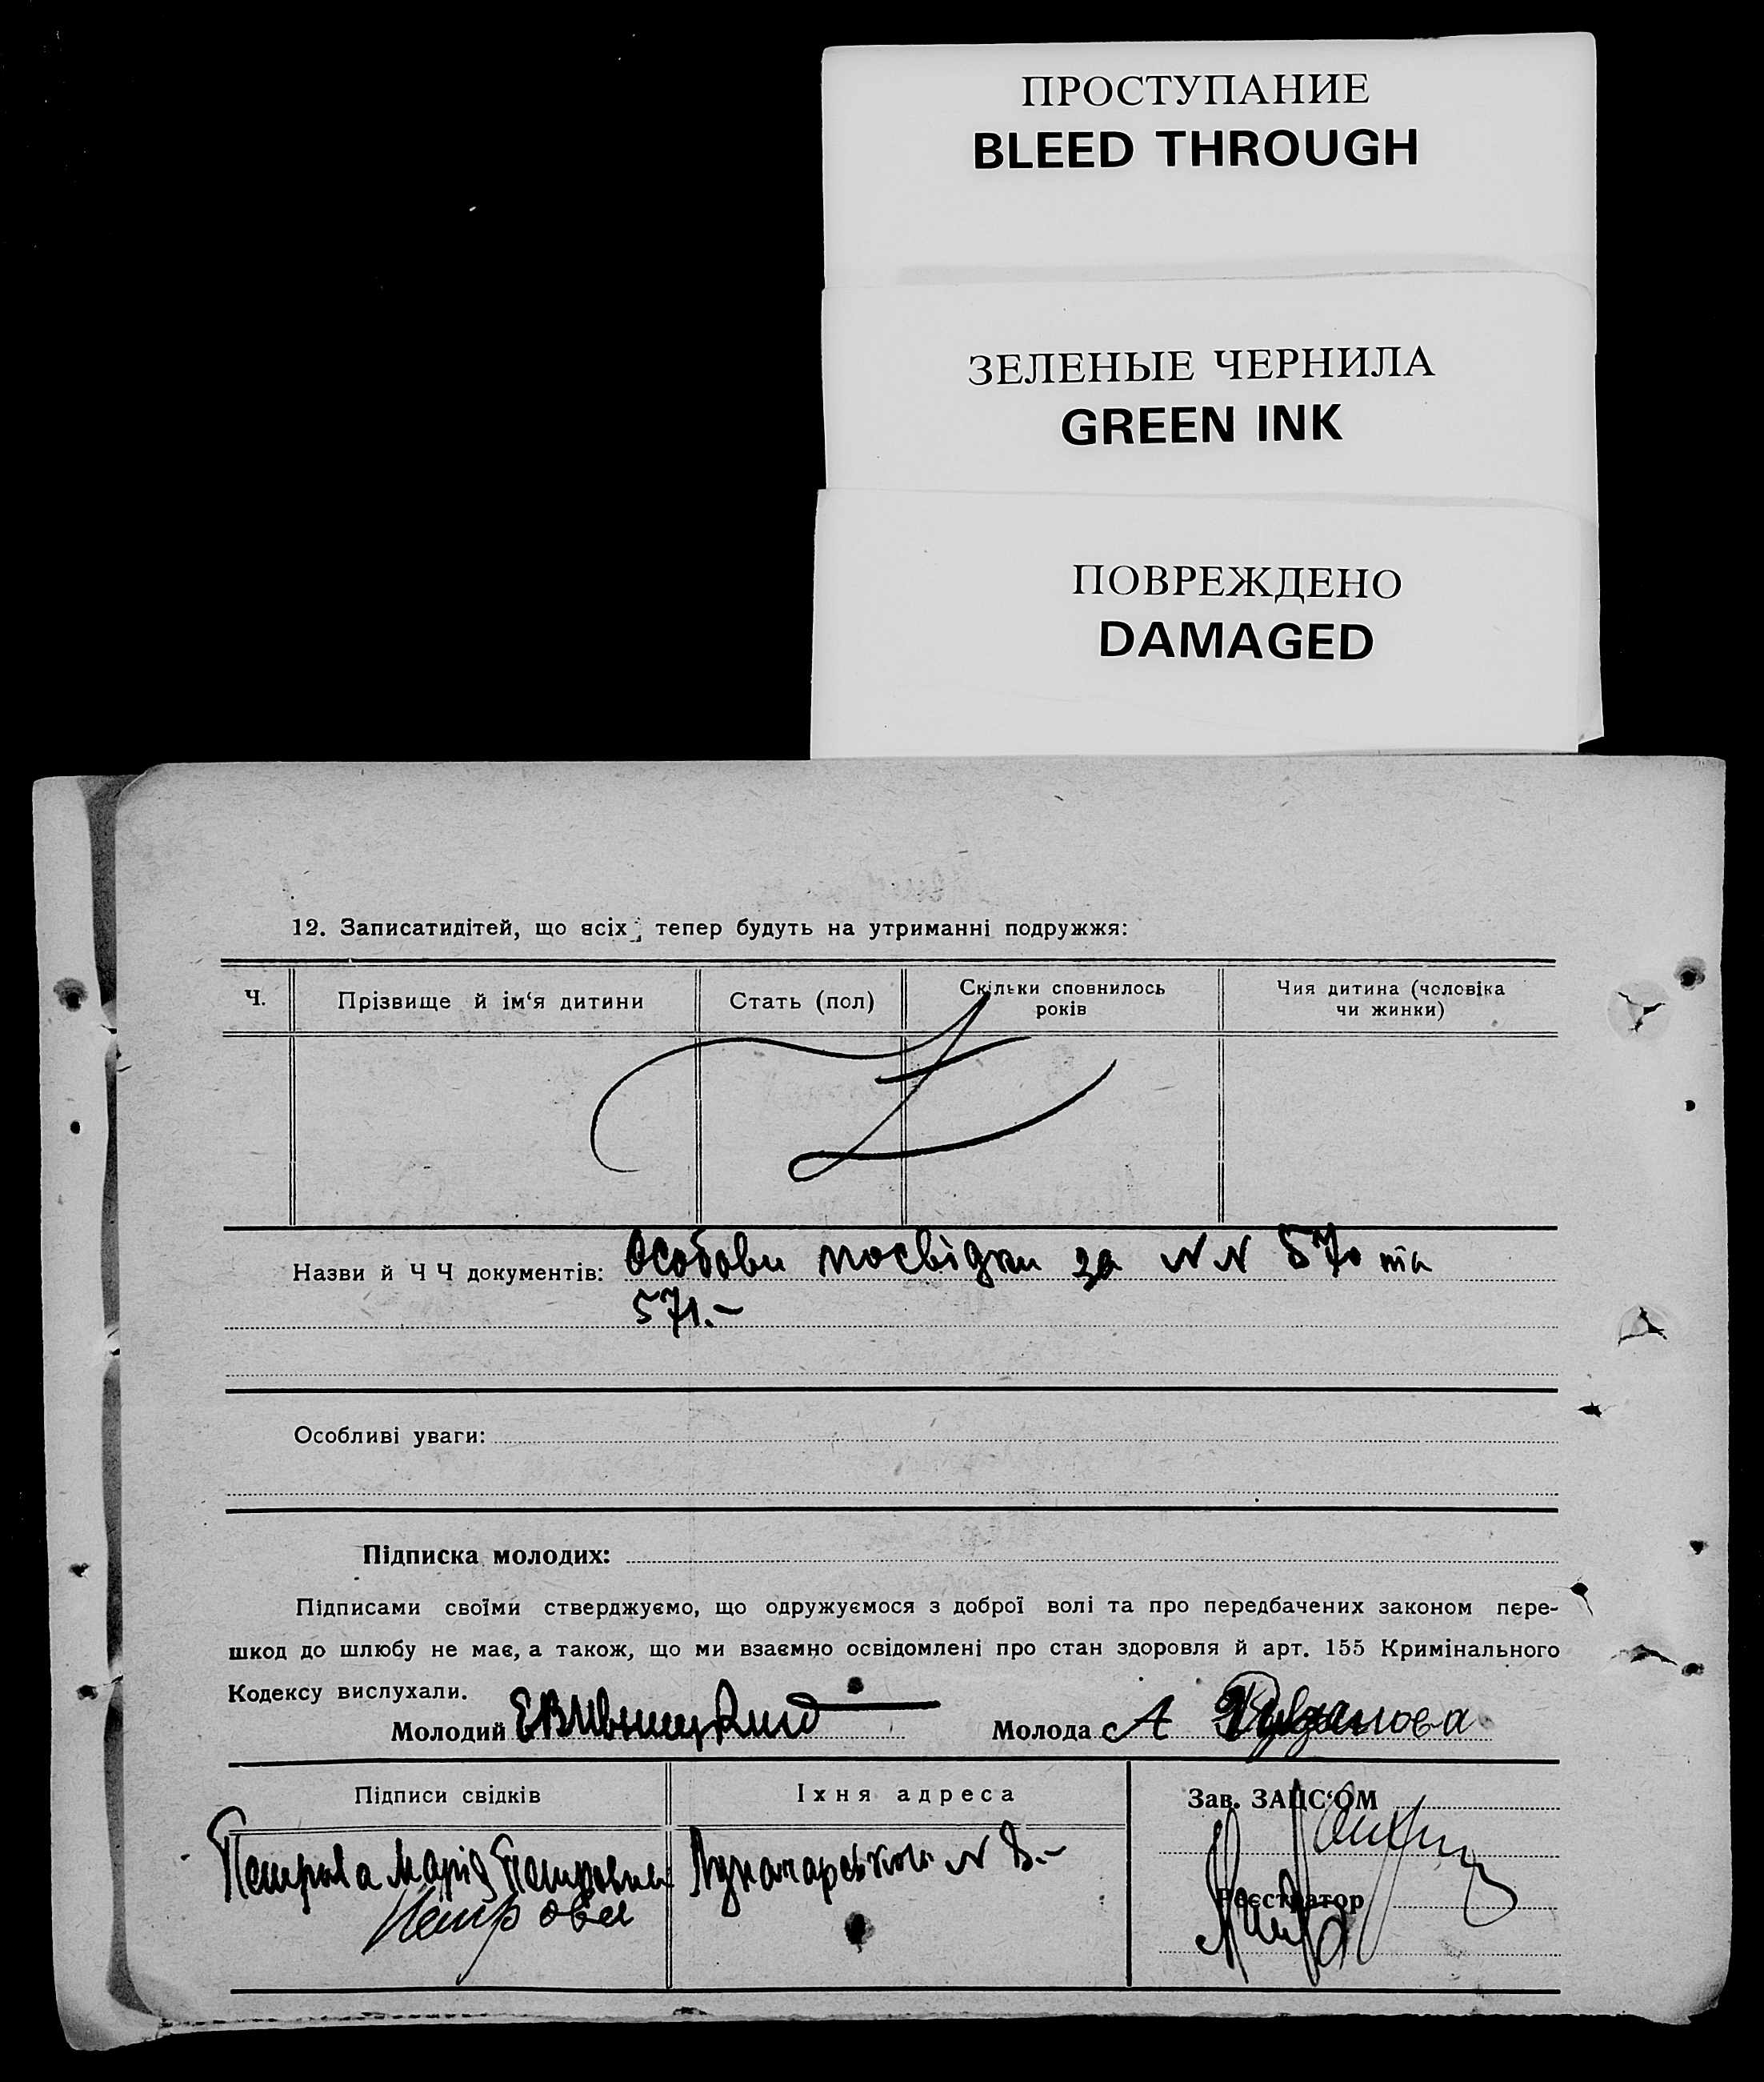 ПРОСТУПАНИЕ
BLEED THROUGH
ЗЕЛЕНЫЕ ЧЕРНИЛА
GREEN INK
ПОВРЕЖДЕНО
DAMAGED
12. Записатидітей, що всіх тепер будуть на утриманні подружжя:
Ч.
Прізвище й ім‘я дитини
Стать (пол)
Скільки сповнилось
років
Чия дитина (чоловіка
чи жинки)
Назви й Ч Ч документів: Особови посвідки за N N 570 та
571.-
Особливі уваги:
Підписка молодих:
Підписами своїми стверджуємо, що одружуємося з доброї волі та про передбачених законом пере-
шкод до шлюбу не має, а також, що ми взаємно освідомлені про стан здоровля й арт. 155 Кримінального
Кодексу вислухали.
Молодий
Молода А
Підписи свідків
Їхня адреса
Зав. ЗАЦС‘ОМ
Петрова Марія Петровна
Луначарського N 8.-
Петрова
Реєстратор